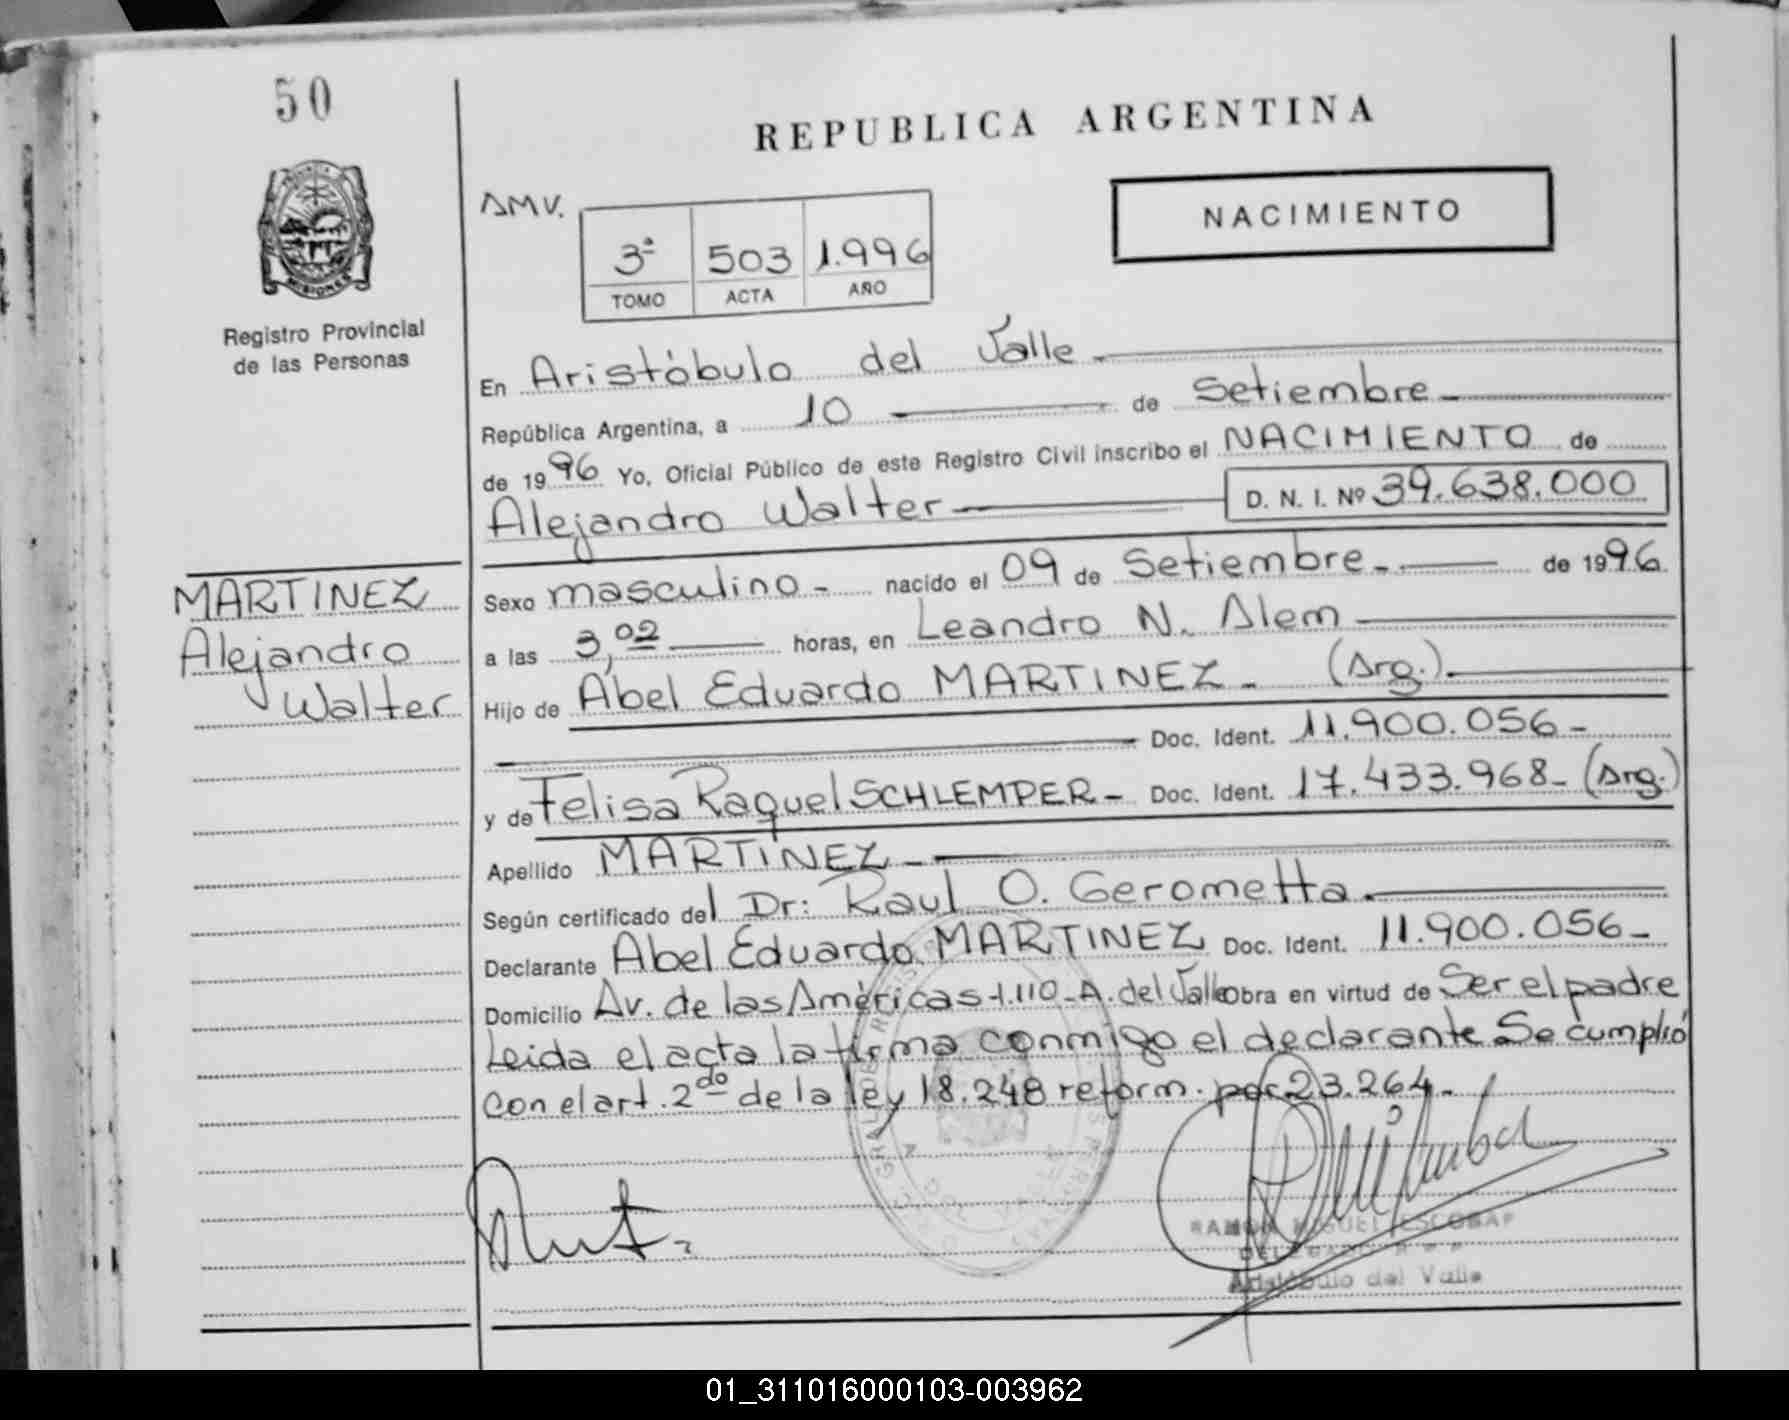 50
REPUBLICA ARGENTINA
AMV.
NACIMIENTO
3ª 503 1.996
TOMO ACTA AÑO
MISIONES
Registro Provincial
de las Personas
En Aristóbulo del Valle.-
República Argentina, a 10 de Setiembre.-
de 1996 Yo, Oficial Público de este Registro Civil inscribo el NACIMIENTO de
Alejandro Walter D. N. I. Nº 39.638.000
MARTINEZ
Alejandro
Walter
Sexo masculino.- nacido el 09 de Setiembre.- de 1996.
a las 3,02 horas, en Leandro N. Alem
Hijo de Abel Eduardo MARTINEZ.- (Arg.).-
Doc. Ident. 11.900.056.-
y de Felisa Raquel SCHLEMPER.- Doc. Ident. 17.433.968.- (Arg.)
Apellido MARTINEZ.-
Según certificado del Dr: Raul O. Gerometta.-
Declarante Abel Eduardo MARTINEZ Doc. Ident. 11.900.056.-
Domicilio Av. de las Américas-1.110-A. del Valle obra en virtud de Ser el padre
Leida el acta la firma conmigo el declarante. Se cumplió
con el art. 2do de la ley 18.248 reform. por 23.264.-
RAMON MIGUEL ESCOBAR
DELEGADO
Aristóbulo del Valle
01_311016000103-003962